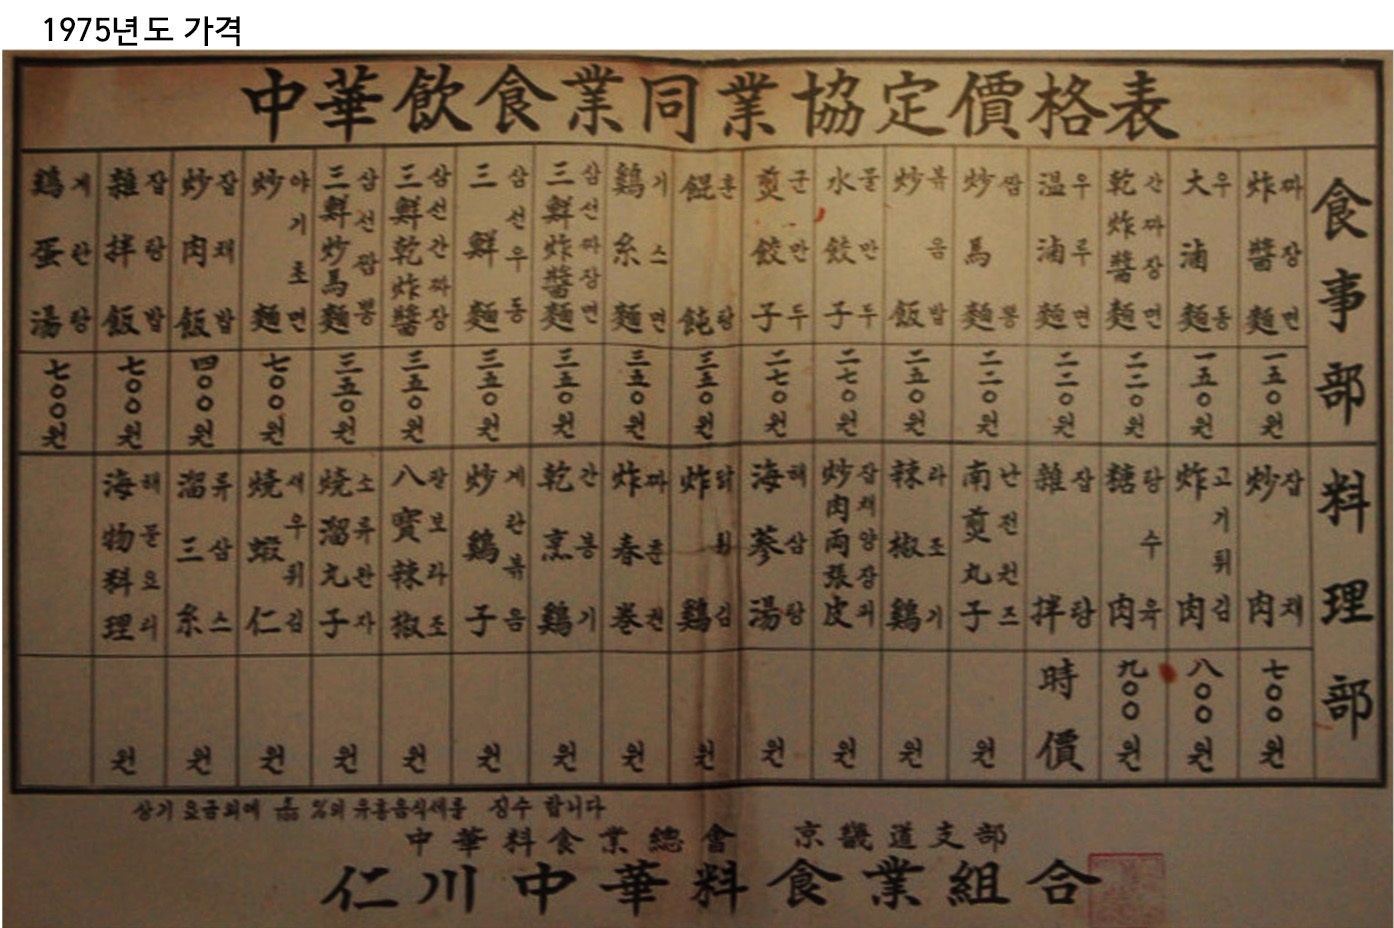 1975년도 가격
中華飮食業同業協定價格表
食事部
炸醬麵 짜장면 一五〇원
大滷麵 우동 一五〇원
乾炸醬麵 간짜장면 二二〇원
溫滷麵 우루면 二二〇원
炒馬麵 짬뽕 二二〇원
炒飯 볶음밥 二五〇원
水餃子 물만두 二七〇원
煎餃子 군만두 二七〇원
餛飩 훈탕 三五〇원
鷄糸麵 기스면 三五〇원
三鮮炸醬麵 삼선짜장면 三五〇원
三鮮麵 삼선우동 三五〇원
三鮮乾炸醬 삼선간짜장 三五〇원
三鮮炒馬麵 삼선짬뽕 三五〇원
炒麵 야기초면 七〇〇원
炒肉飯 잡채밥 四〇〇원
雜拌飯 잡탕밥 七〇〇원
鷄蛋湯 계란탕 七〇〇원
料理部
炒肉 잡채 七〇〇원
炸肉 고기튀김 八〇〇원
糖肉 탕수육 九〇〇원
雜拌 잡탕 時價
南煎丸子 난전완즈 원
辣椒鷄 라조기 원
炒肉両張皮 잡채양장피 원
海蔘湯 해삼탕 원
炸鷄 닭튀김 원
炸春巻 짜춘권 원
乾烹鷄 간풍기 원
炒鷄子 계란볶음 원
八寶辣椒 팔보라조 원
燒溜丸子 소류완자 원
燒蝦仁 새우튀김 원
溜三糸 류삼스 원
海物料理 해물요리 원
상기 요금외에 %의 유흥음식세를 징수 합니다
中華料食業總會 京畿道支部
仁川中華料食業組合